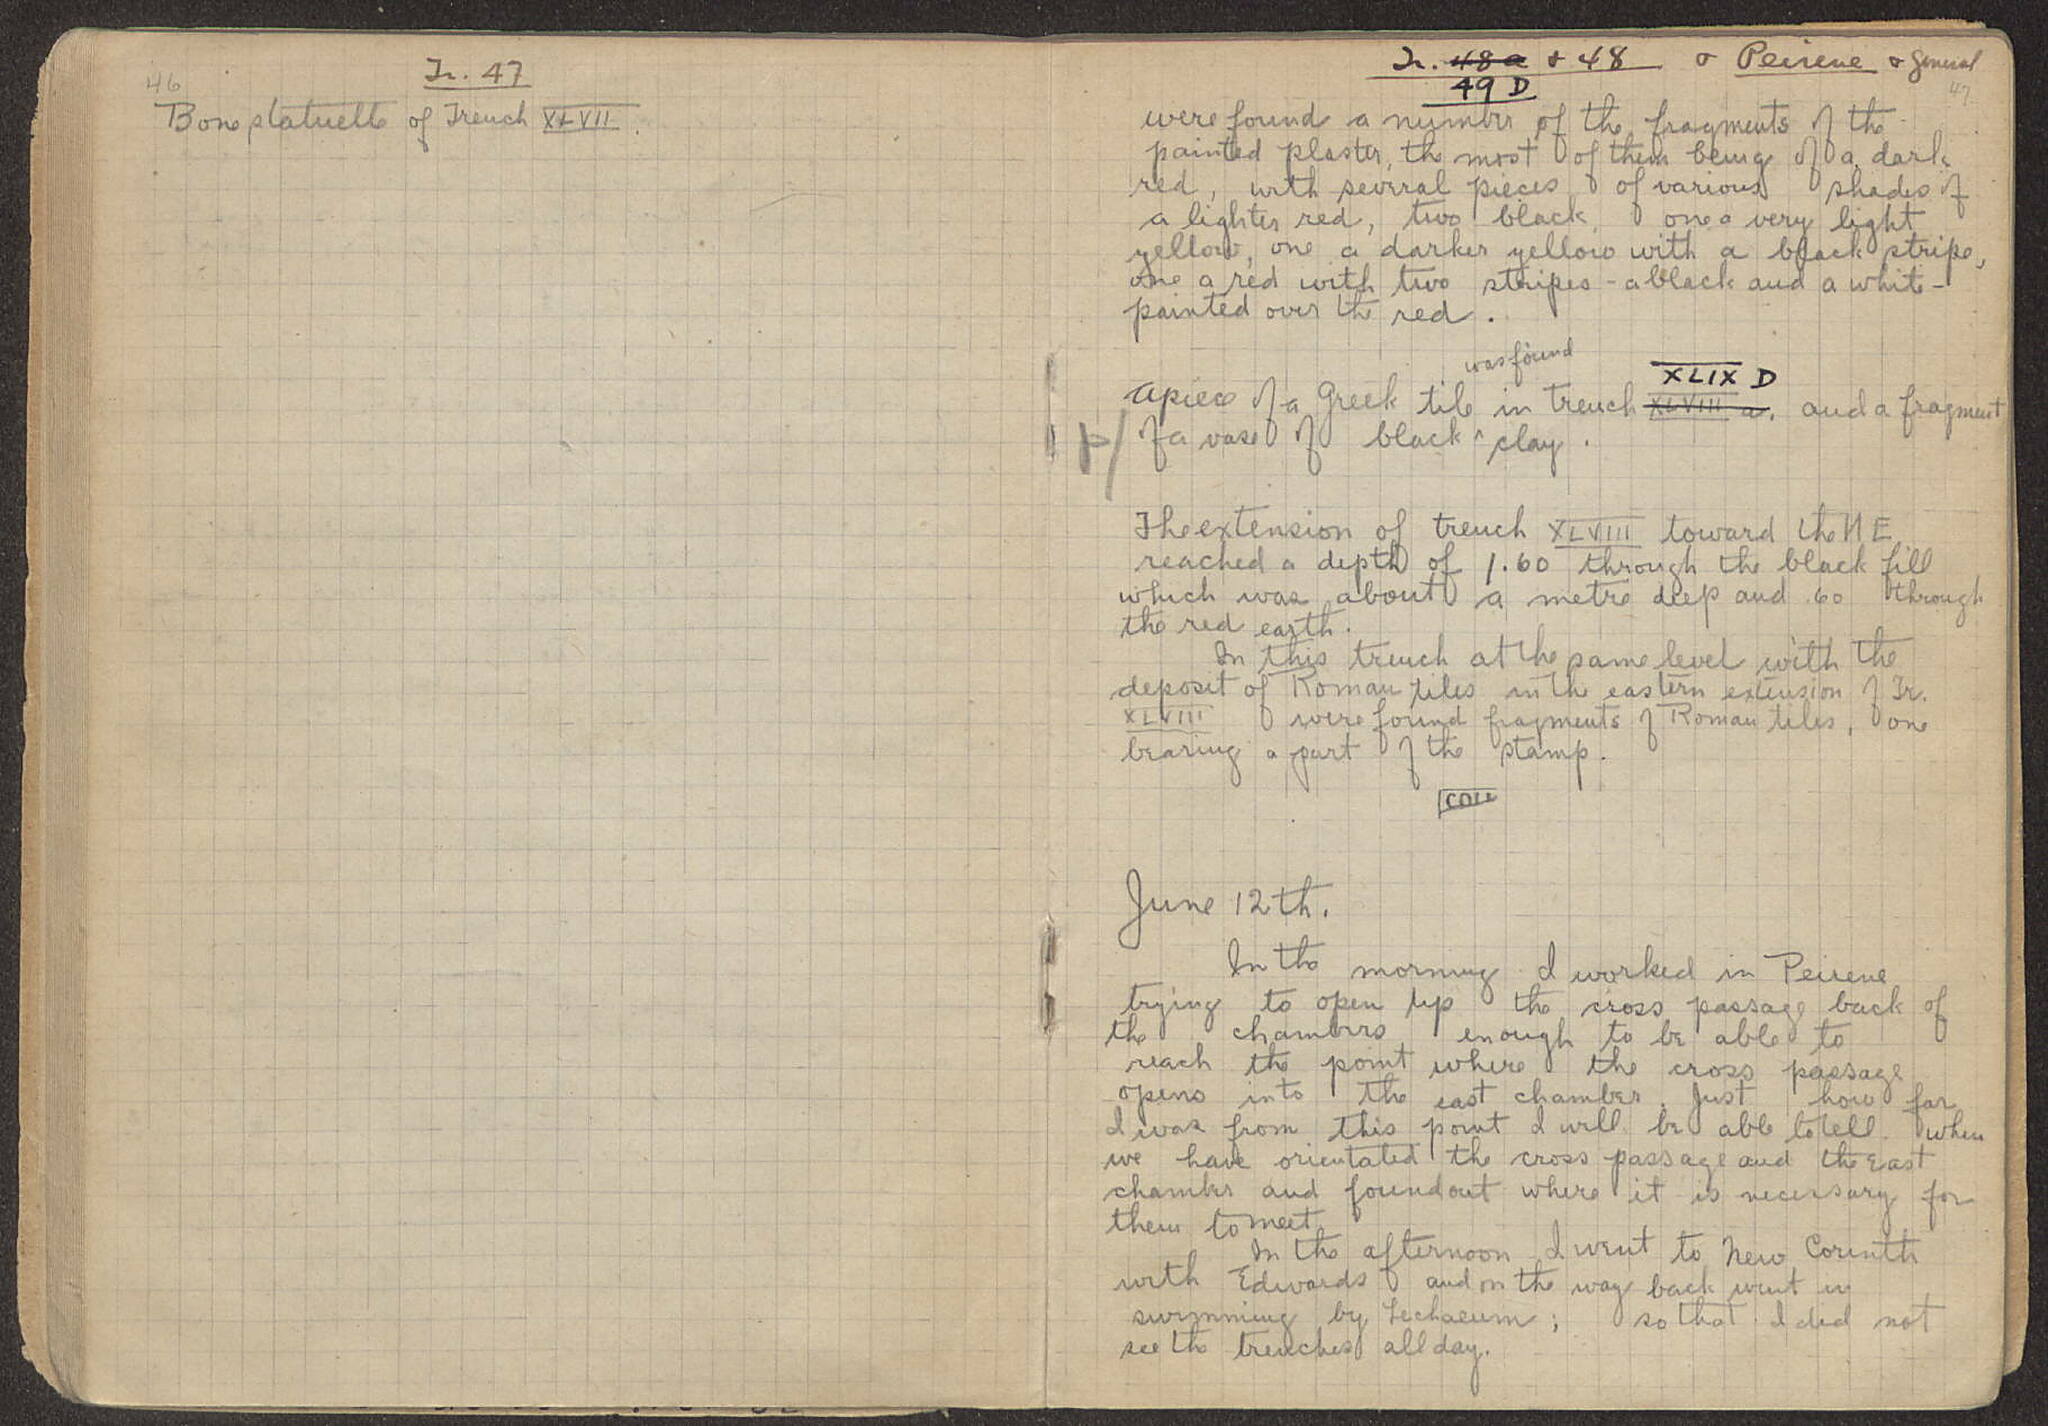 46
Tr. 47
Bone statuette of Trench XLVII.
Tr. 48a + 48 + Peirene + General
49 D
47
were found a number of the fragments of the
painted plaster, the most of them being of a dark
red, with several pieces of various shades of
a lighter red, two black, one a very light
yellow, one a darker yellow with a black stripe,
one a red with two stripes - a black and a white -
painted over the red.
was found
XLIX D
A piece of a Greek tile in trench XLVIII a, and a fragment
of a vase of black ^ clay.
P/
The extension of trench XLVIII toward the NE
reached a depth of 1.60 through the black fill
which was about a metre deep and .60 through
the red earth.
In this trench at the same level with the
deposit of Roman tiles in the eastern extension of Tr.
XLVIII were found fragments of Roman tiles, one
bearing a part of the stamp.
June 12th.
In the morning I worked in Peirene
trying to open up the cross passage back of
the chambers enough to be able to
reach the point where the cross passage
opens into the east chamber. Just how far
I was from this point I will be able to tell when
we have orientated the cross passage and the east
chamber and found out where it is necessary for
them to meet
In the afternoon I went to New Corinth
with Edwards and on the way back went in
swimming by Lechaeum; so that I did not
see the trenches all day.